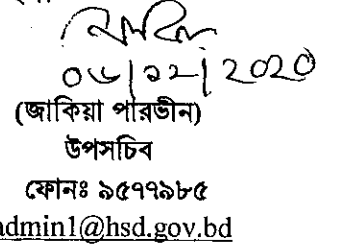 ০৬|১২|২০২০
(জাকিয়া পারভীন)
উপসচিব
ফোনঃ ৯৫৭৭৯৮৫
admin1@hsd.gov.bd